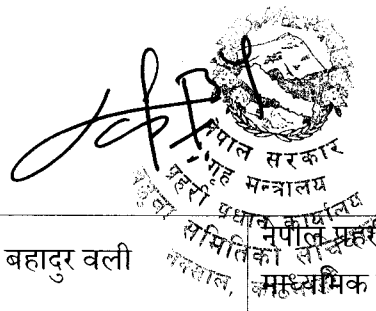 नेपाल सरकार
गृह मन्त्रालय
प्रहरी प्रधान कार्यालय
बढुवा समितिको सचिवालय
नक्साल,
बहादुर वली
नेपाल प्रहरी
माध्यमिक